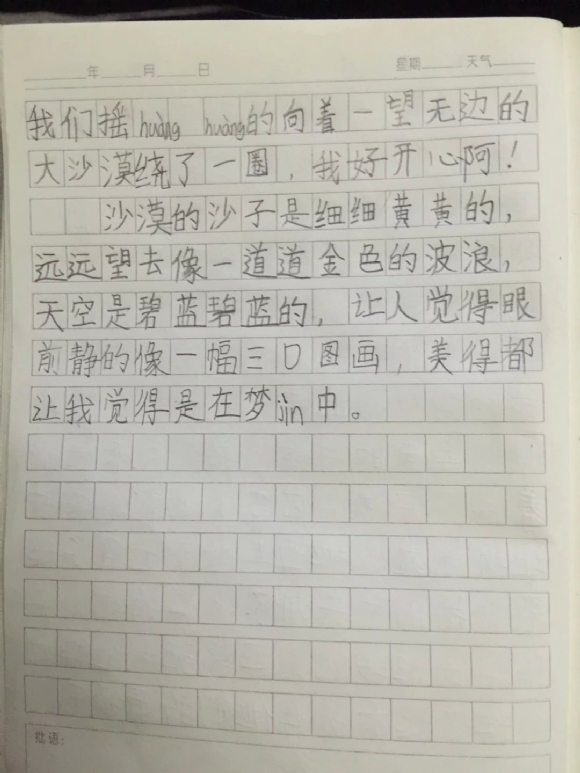 年 月 日 星期 天气
我们摇huàng huàng的向着一望无边的
大沙漠绕了一圈，我好开心啊！
沙漠的沙子是细细黄黄的，
远远望去像一道道金色的波浪，
天空是碧蓝碧蓝的，让人觉得眼
前静的像一幅三口图画，美得都
让我觉得是在梦jìn中。
批语：